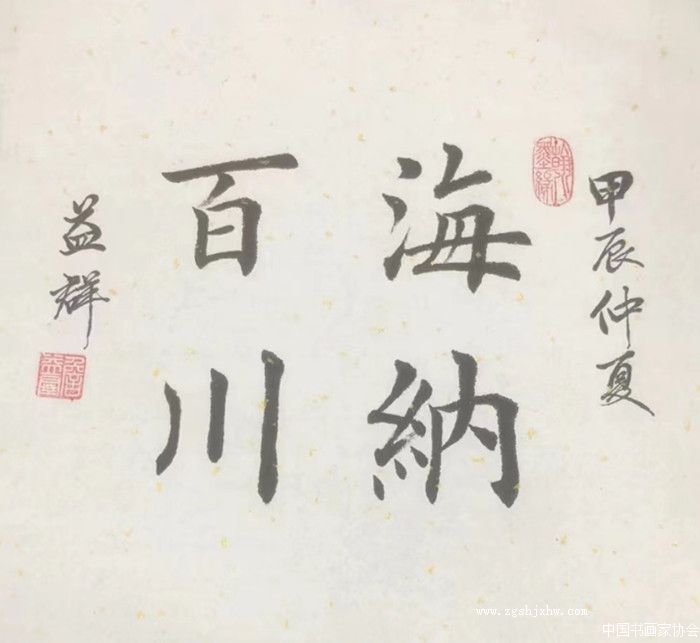 甲辰仲夏
海納
百川
益群
www.zgshjxhw.com
中国书画家协会